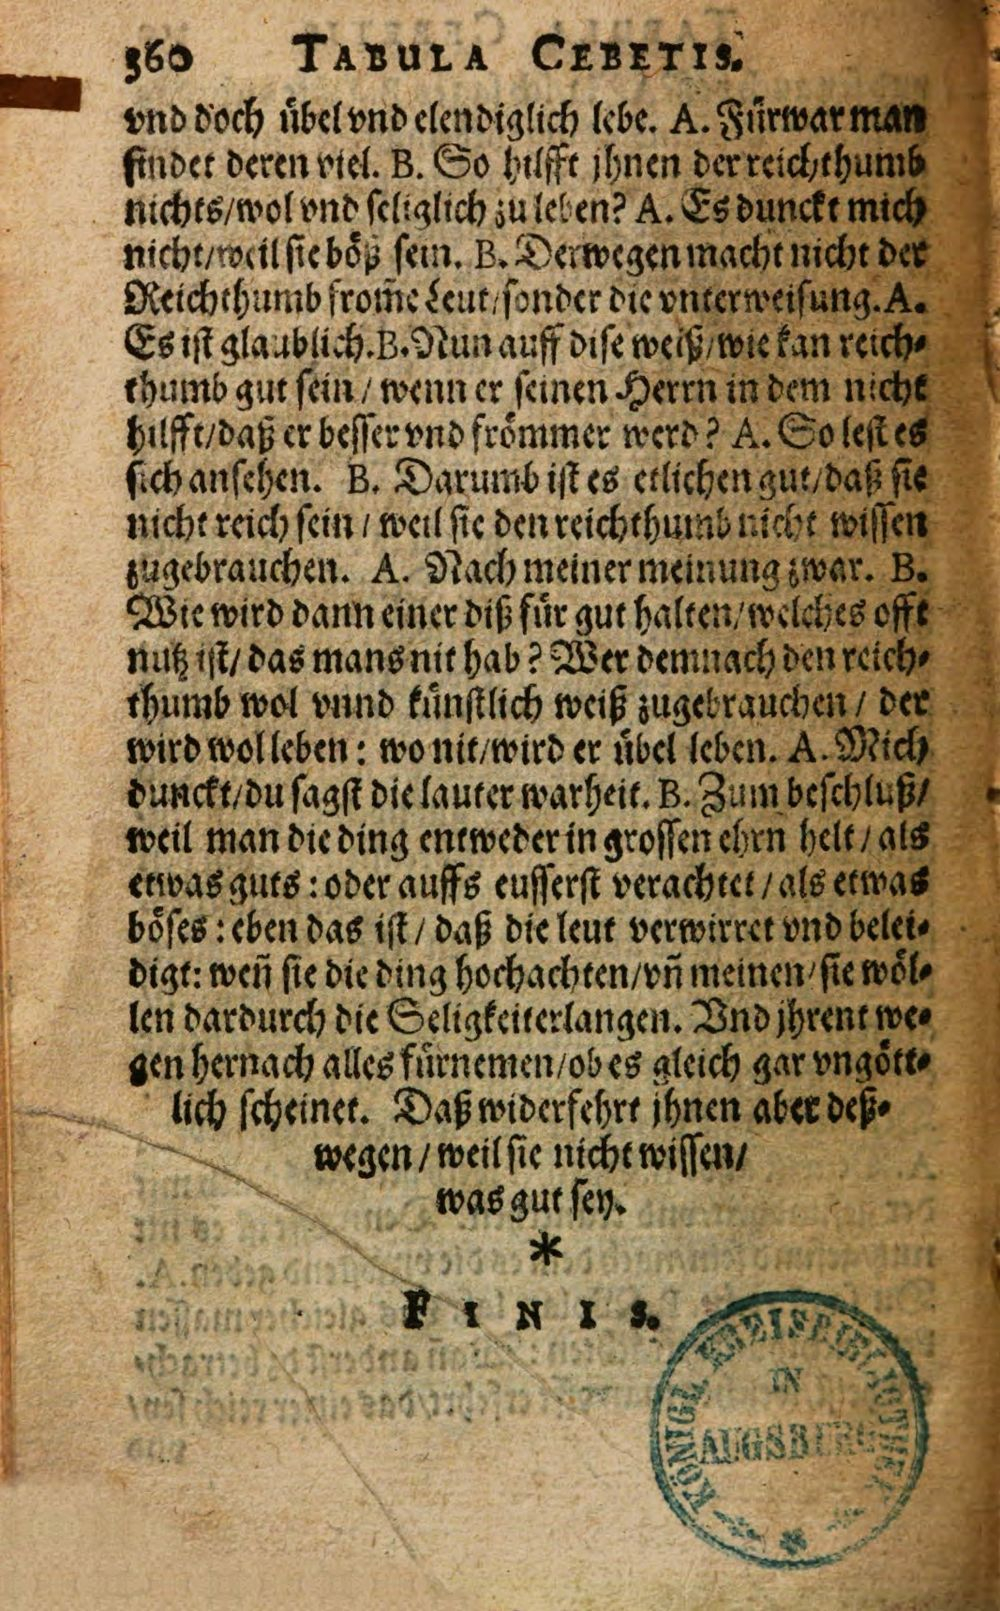 360 TABULA CEBETIS.
vnd doch übel vnd elendiglich lebe. A. Fürwar man
findet deren viel. B. So hilfft jhnen der reichthumb
nichts/wol vnd seliglich zu leben? A. Es dunckt mich
nicht/weil sie böß sein. B. Derwegen macht nicht der
Reichthumb from̃e Leut/sonder die vnterweisung. A.
Es ist glaublich. B. Nun auff dise weiß/wie kan reich-
thumb gut sein/wenn er seinen Herrn in dem nicht
hilfft/daß er besser vnd frömmer werd? A. So lest es
sich ansehen. B. Darumb ist es etlichen gut/daß sie
nicht reich sein/weil sie den reichthumb nicht wissen
zugebrauchen. A. Nach meiner meinung zwar. B.
Wie wird dann einer diß für gut halten/welches offt
nutz ist/das mans nit hab? Wer demnach den reich-
thumb wol vnnd künstlich weiß zugebrauchen/der
wird wol leben: wo nit/wird er übel leben. A. Mich
dunckt/du sagst die lauter warheit. B. Zum beschluß/
weil man die ding entweder in grossen ehrn helt/als
etwas guts: oder auffs eusserst verachtet/als etwas
böses: eben das ist/daß die leut verwirret vnd belei-
digt: weñ sie die ding hochachten/vñ meinen/sie wöl-
len dardurch die Seligkeit erlangen. Vnd jhrent we-
gen hernach alles fürnemen/ob es gleich gar vngött-
lich scheinet. Daß widerfehrt jhnen aber deß-
wegen/weil sie nicht wissen/
was gut sey.
*
FINIS.
KÖNIGL. KREISBIBLIOTHEK
IN
AUGSBURG